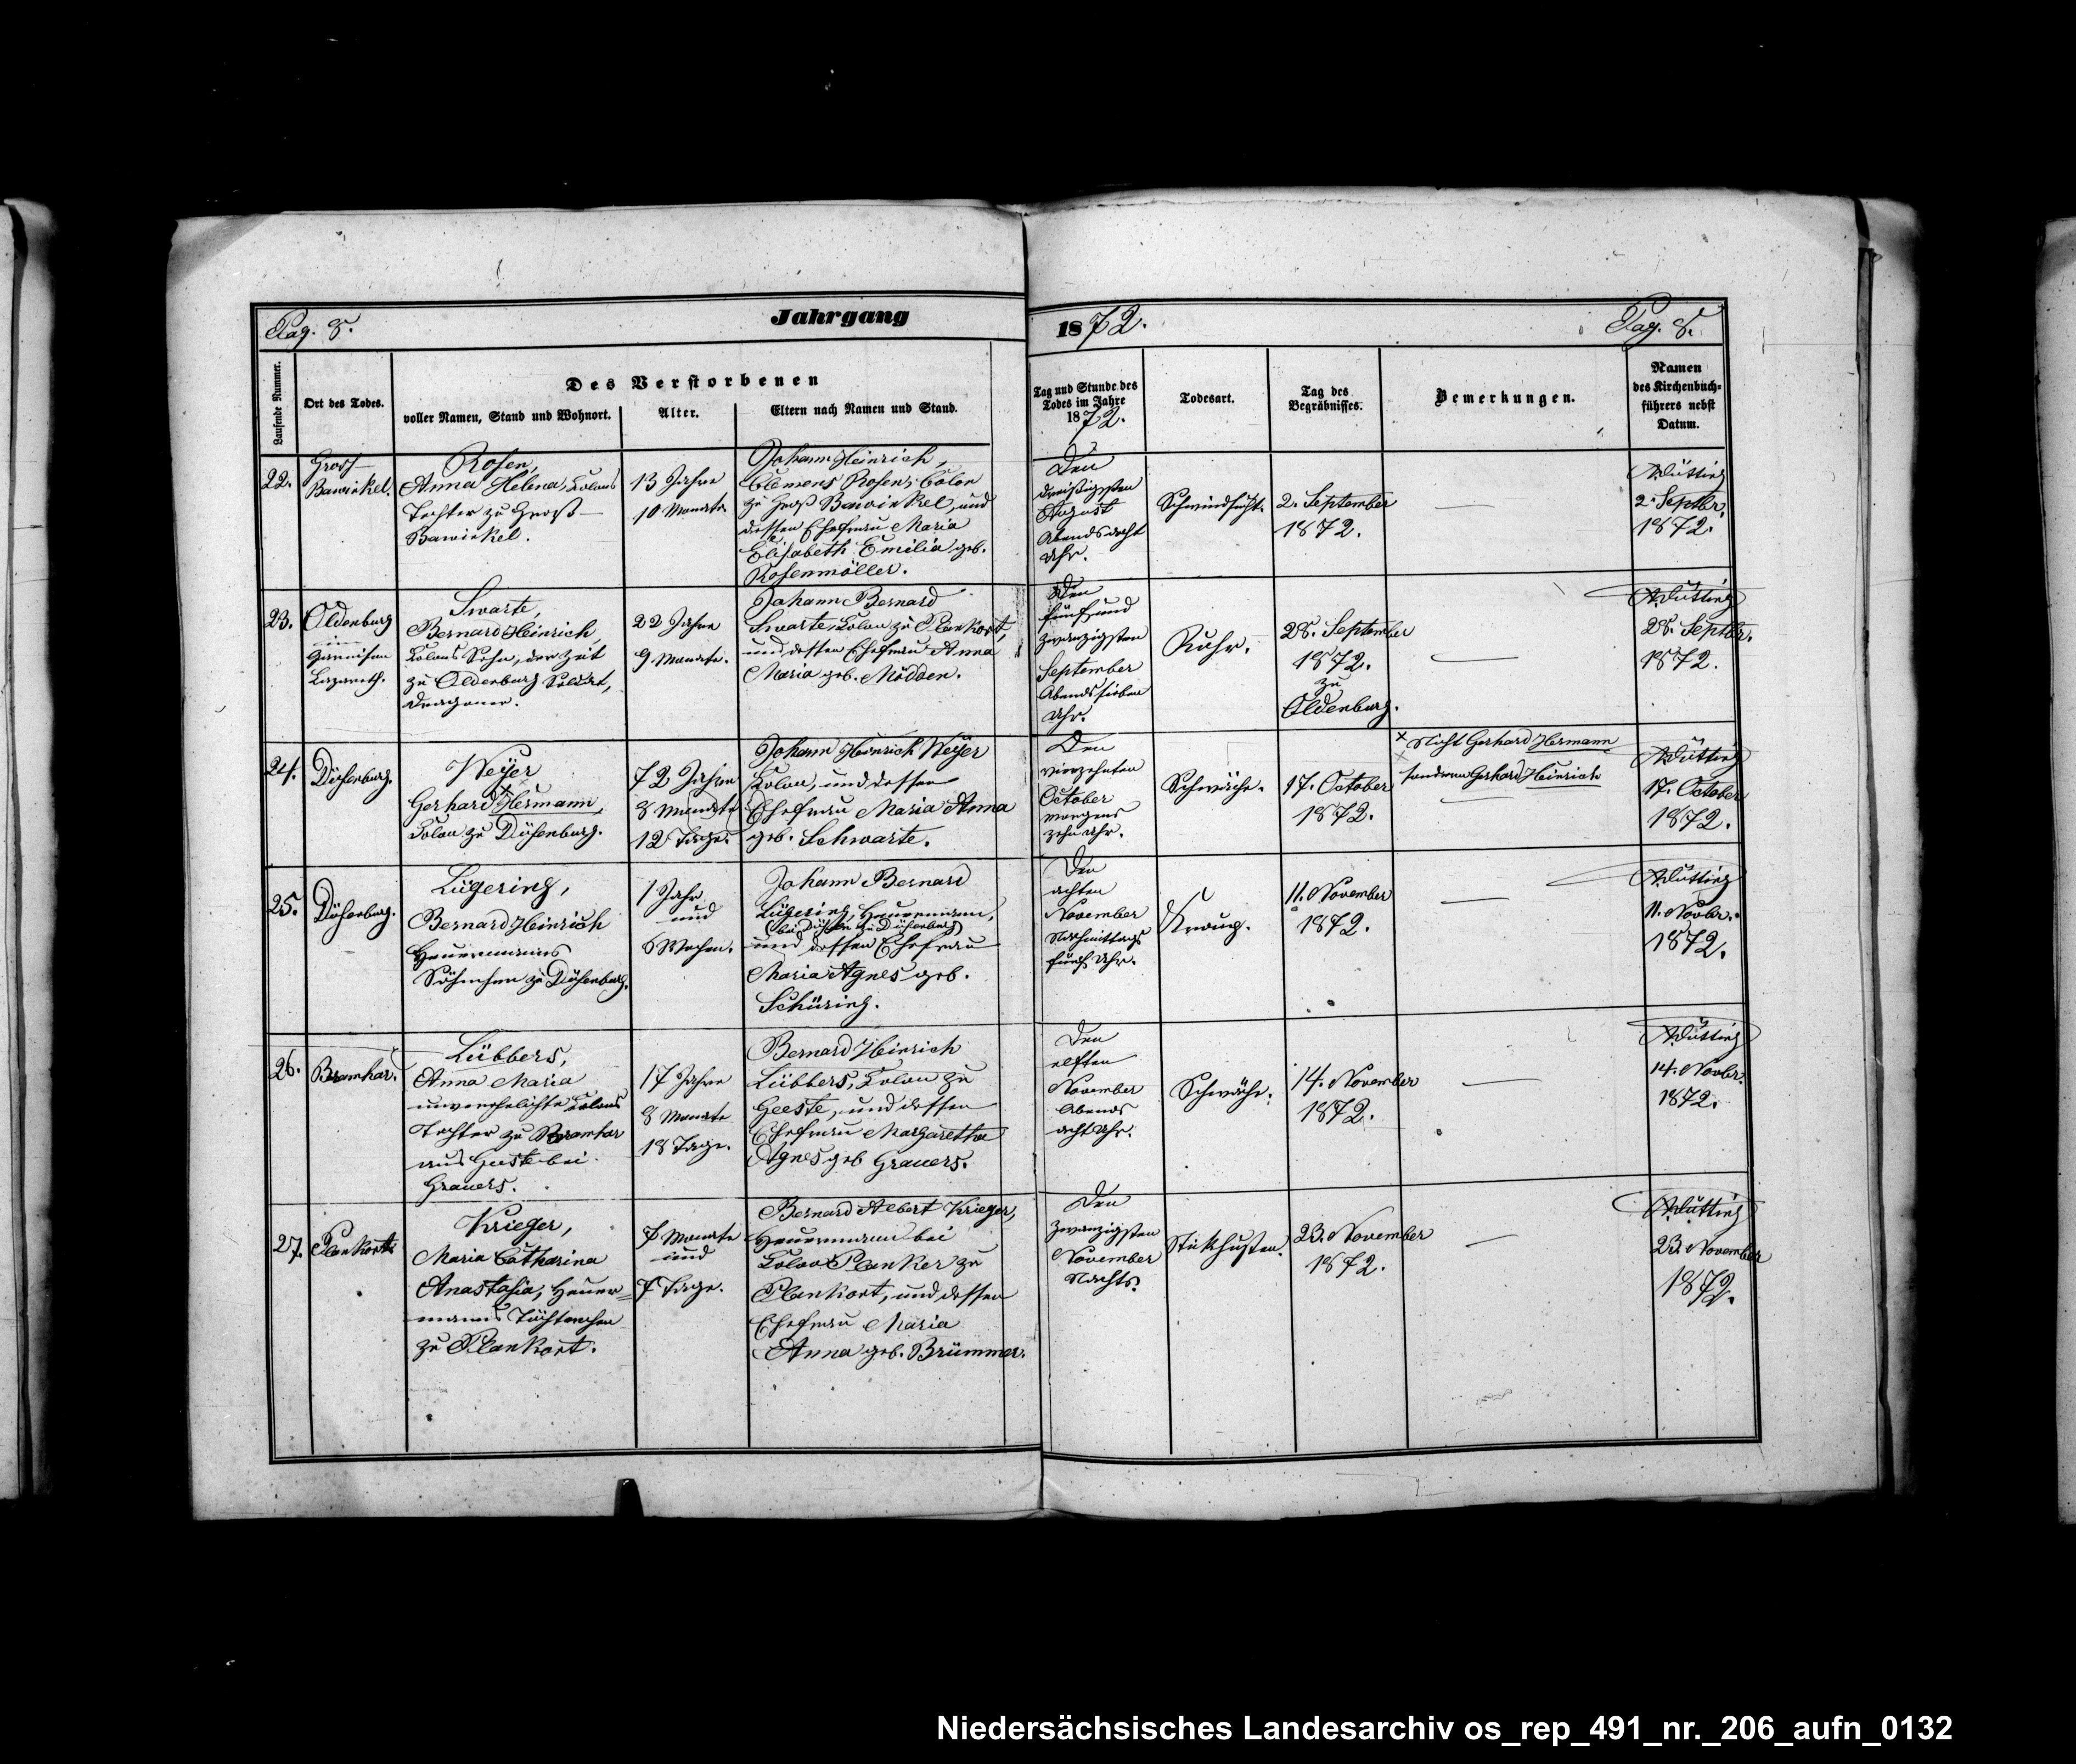 Pag. 8.
Jahrgang
1872.
Pag. 8.
Laufende Nummer.
Ort des Todes.
Des Verstorbenen
voller Namen, Stand und Wohnort.
Alter.
Eltern nach Namen und Stand.
Tag und Stunde des
Todes im Jahre
1872.
Todesart.
Tag des
Begräbnisses.
Bemerkungen.
Namen
des Kirchenbuch-
führers nebst
Datum.
22.
Groß-
Bawinkel.
Rosen,
Anna Helena, Colons
Tochter zu Groß-
Bawinkel.
13 Jahre
10 Monate
Johann Heinrich,
Clemens Rosen, Colon
zu Groß Bawinkel, und
dessen Ehefrau Maria
Elisabeth Emilia geb.
Rosenmöller.
Den
dreißigsten
August
Abends acht
Uhr.
Schwindsucht.
2. September
1872.
—
ADütting
2. Septbr.
1872.
23.
Oldenburg
im
Garnison
Lazareth.
Swarte,
Bernard Heinrich,
Colons Sohn, der Zeit
zu Oldenburg Soldat,
Dragoner.
22 Jahre
9 Monate.
Johann Bernard
Swarte, Colon zu Plankort,
und dessen Ehefrau Anna
Maria geb. Mödden.
Den
fünf und
zwanzigsten
September
Abends sieben
Uhr.
Ruhr.
28. September
1872.
zu
Oldenburg.
—
ADütting
28. Septbr.
1872.
24.
Düsenburg.
Weÿer
Gerhard × Hermann,
Colon zu Düsenburg.
72 Jahre
8 Monate
12 Tage.
Johann Heinrich Weÿer
Colon, und dessen
Ehefrau Maria Anna
geb. Schwarte.
Den
vierzehnten
October
morgens
zehn Uhr.
Schwäche.
17. October
1872.
× Nicht Gerhard Hermann
sondern Gerhard Heinrich
ADütting
17. October
1872.
25.
Düsenburg.
Lügering,
Bernard Heinrich
Heuermanns
Söhnchen zu Düsenburg.
1 Jahr
und
6 Wochen.
Johann Bernard
Lügering, Heuermann,
(bei Düsen zu Düsenburg)
und dessen Ehefrau
Maria Agnes geb.
Schüring.
Den
achten
November
Nachmittags
fünf Uhr.
Kroup.
11. November
1872.
—
ADütting
11. Novbr.
1872.
26.
Bramhar.
Lübbers,
Anna Maria
unverehelichte Colons
Tochter zu Bramhar
aus Geeste bei
Grauers.
17 Jahre
8 Monate
18 Tage.
Bernard Heinrich
Lübbers, Colon zu
Geeste, und dessen
Ehefrau Margaretha
Agnes geb Grauers.
Den
elften
November
Abends
acht Uhr.
Schwäche.
14. November
1872.
—
ADütting
14. Novbr.
1872.
27.
Plankort.
Krieger,
Maria Catharina
Anastasia, Heuer=
manns Töchterchen
zu Plankort.
7 Monate
und
7 Tage.
Bernard Albert Krieger,
Heuermann bei
Colon Planker zu
Plankort, und dessen
Ehefrau Maria
Anna geb. Brümmer.
Den
zwanzigsten
November
Nachts.
Stickhusten.
23. November
1872.
—
ADütting
23. November
1872.
Niedersächsisches Landesarchiv os_rep_491_nr._206_aufn_0132